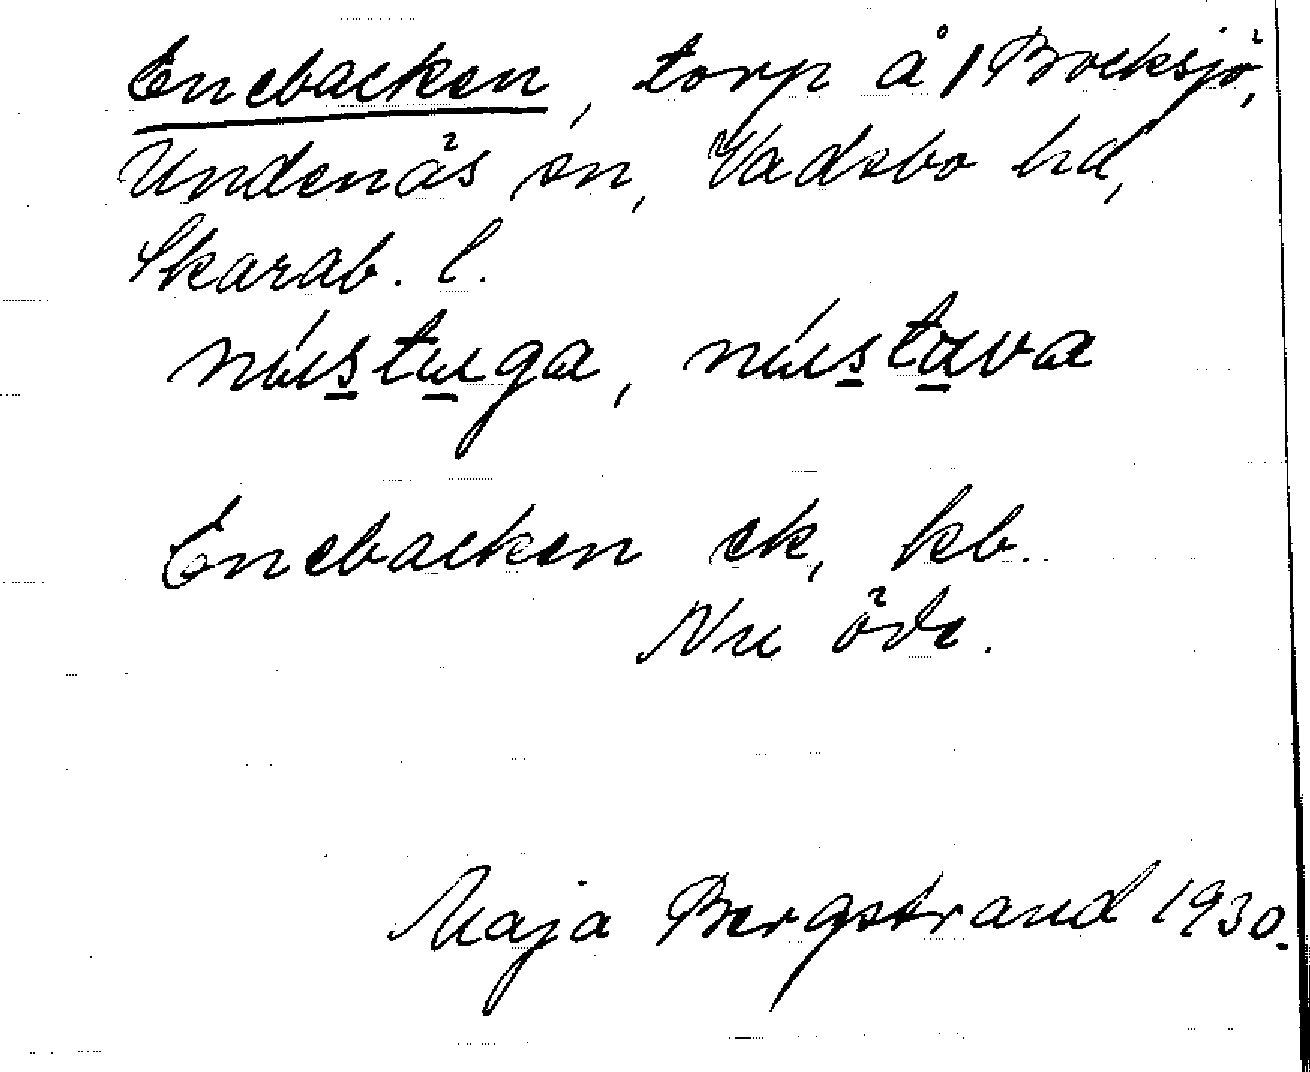 Enebacken, torp å/Bocksjö,
Undenäs sn, Vadsbo hd,
Skarab. l.
nústuga, nústava
Enebacken ek, kb.
Nu öde.
Maja Bergstrand 1930.